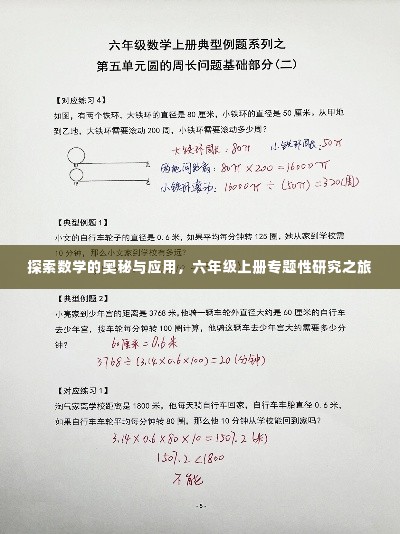 六年级数学上册典型例题系列之
第五单元圆的周长问题基础部分(二)
【对应练习4】
如图，有两个铁环，大铁环的直径是80厘米，小铁环的直径是50厘米，从甲地
到乙地，大铁环需要滚动200周，小铁环需要滚动多少周？
大铁环周长：80π 小铁环周长：50π
两地间距离：80π×200=16000π
小铁环滚动：16000π÷(50π)=320(周)
【典型例题1】
小文的自行车轮子的直径是0.6米，如果平均每分钟转125圈，她从家到学校需
探索数学的奥秘与应用，六年级上册专题性研究之旅
【典型例题2】
小亮家到少年宫的距离是3768米，他骑一辆车轮外直径大约是60厘米的自行车
去少年宫，按车轮每分钟转100圈计算，他骑这辆车去少年宫大约需要多少分
钟？
60厘米=0.6米
3768÷(3.14×0.6×100)=20(分钟)
【对应练习1】
淘气家离学校距离是1800米，他每天骑自行车回家，自行车车胎直径0.6米，
如果自行车车轮平均每分钟转80圈，那么他10分钟从学校能回到家吗？
3.14×0.6×80×10=1507.2(米)
1507.2<1800
不能
-5-